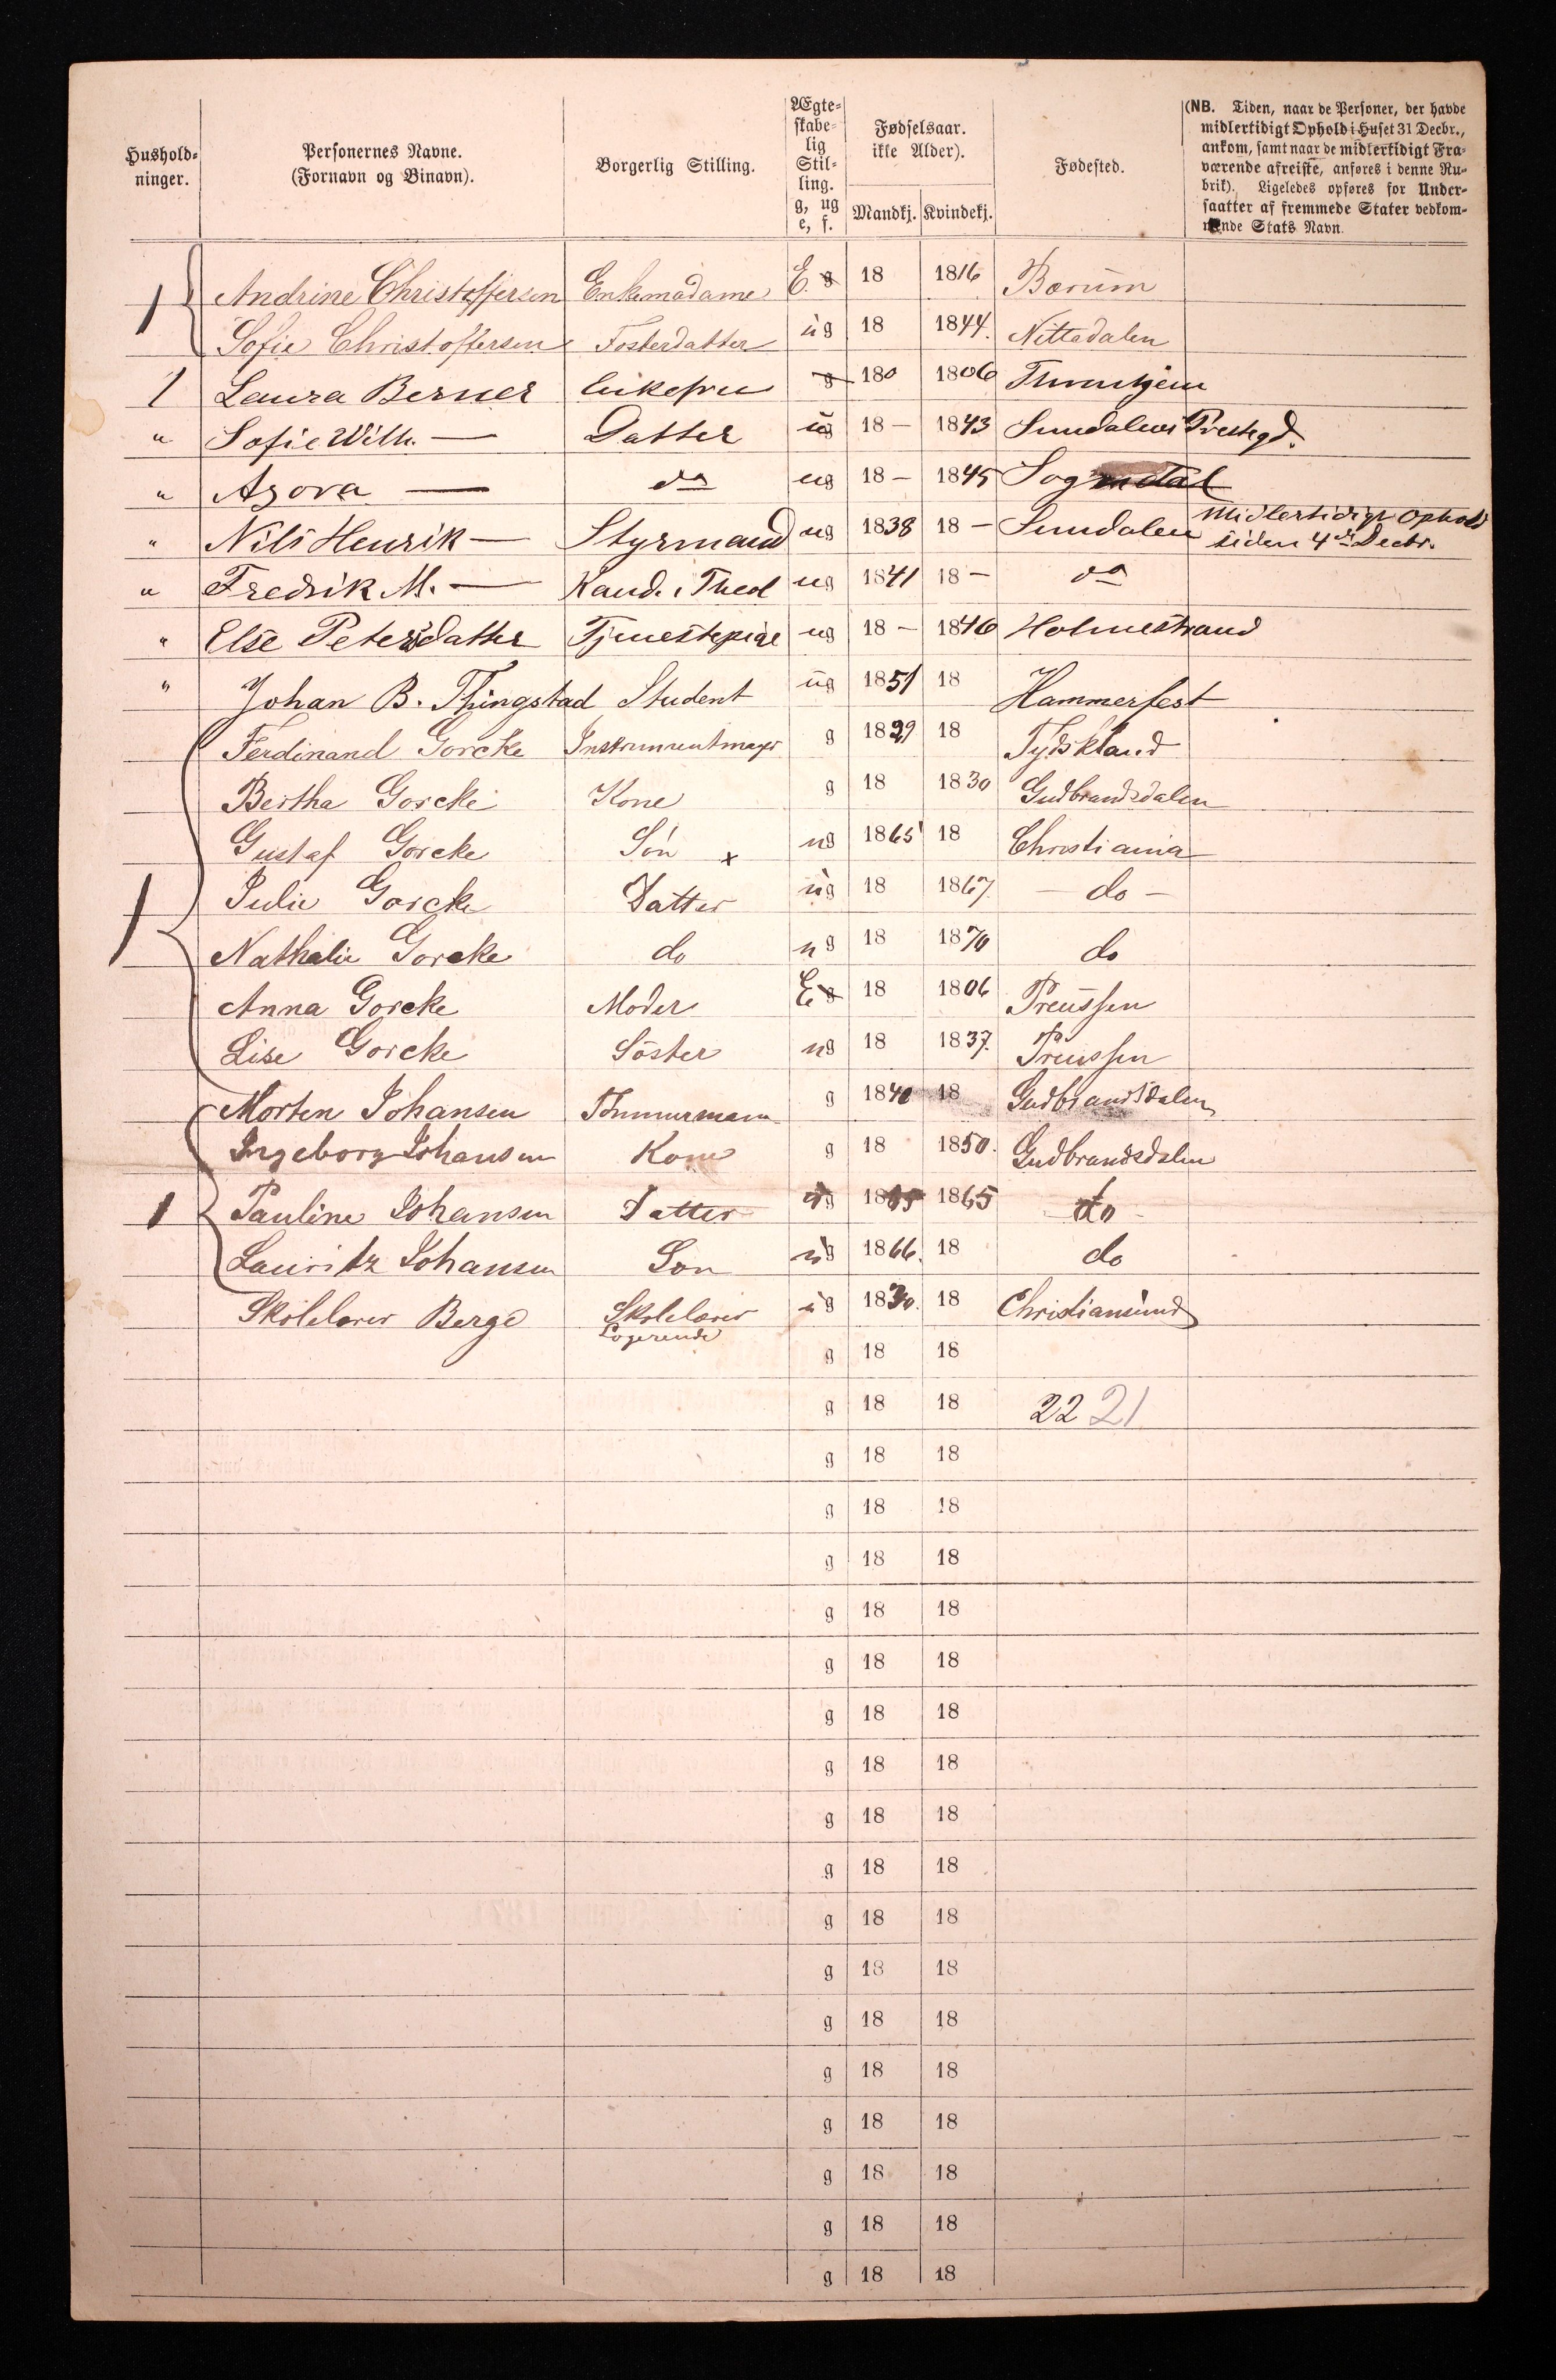 Hushold-
ninger.
Personernes Navne.
(Fornavn og Binavn).
Borgerlig Stilling.
Ægte-
skabe-
lig
Stil-
ling.
g, ug
e, f.
Fødselsaar.
ikke Alder).
Mandkj. Kvindekj.
Fødested.
(NB. Tiden, naar de Personer, der havde
midlertidigt Ophold i Huset 31 Decbr.,
ankom, samt naar de midlertidigt Fra-
værende afreiste, anføres i denne Ru-
brik). Ligeledes opføres for Under-
saatter af fremmede Stater vedkom-
mende Stats Navn.
1 Andrine Christoffersen Enkemadame E. g 18 1816 Bærum
Sofie Christoffersen Fosterdatter ug 18 1844. Nittedalen
1 Laura Berner Enkefru g 180 1806 Thrunhjem
" Sofie Wilh. — Datter ug 18 — 1843 Sundalens Prestegd.
" Asora — do ug 18 — 1845 Sogndal
" Nils Henrik — Styrmand ug 1838 18 — Sundalen Midlertidigt Ophold
siden 4de Decbr.
" Fredrik M. — Kand. i Theol ug 1841 18 — do
" Else Petersdatter Tjenestepige ug 18 — 1846 Holmestrand
" Johan B. Thingstad Student ug 1851 18 Hammerfest
Ferdinand Gorcke Instrumentmager g 1829 18 Tydskland
Bertha Gorcke Kone g 18 1830 Gudbrandsdalen
Gustaf Gorcke Sön x ug 1865 18 Christiania
1 Julie Gorcke Datter ug 18 1867. — do —
Nathalie Gorcke do ug 18 1870 do
Anna Gorcke Moder E g 18 1806 Preussen
Lise Gorcke Söster ug 18 1837. Preussen
Morten Johansen Tömmermann g 1840 18 Gudbrandsdalen
Ingeborg Johansen Kone g 18 1850. Gudbrandsdalen
1 Pauline Johansen Datter ug 18 1865 do
Lauritz Johansen Son ug 1866. 18 do
Skolelærer Berge Skolelærer ug 1830. 18 Christiansund
Logerende
g 18 18
g 18 18 22 21
g 18 18
g 18 18
g 18 18
g 18 18
g 18 18
g 18 18
g 18 18
g 18 18
g 18 18
g 18 18
g 18 18
g 18 18
g 18 18
g 18 18
g 18 18
g 18 18
g 18 18